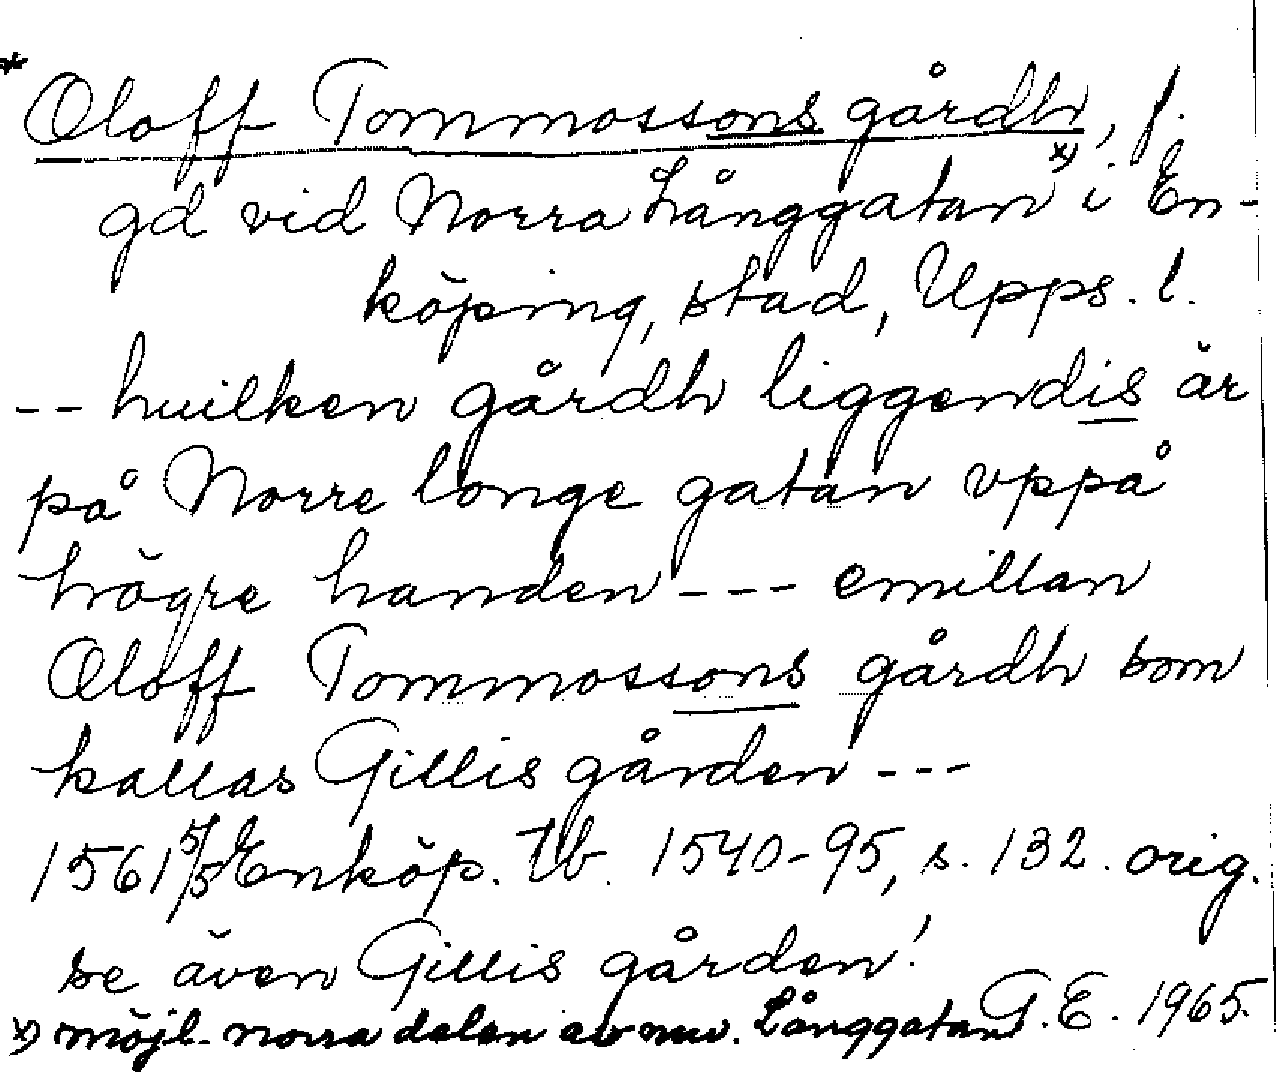 * Oloff Tommossons gårdh, f.
gd vid Norra Långgatan x) i En-
köping, stad, Upps. l.
-- huilken gårdh liggendis är
på Norre longe gatan vppå
högre handen --- emillan
Oloff Tommossons gårdh som
kallas Gillis gården ---
1561 5/5 Enköp. tb. 1540-95, s. 132. orig.
se även Gillis gården!
x) möjl. norra delen av nuv. Långgatan G.E. 1965.